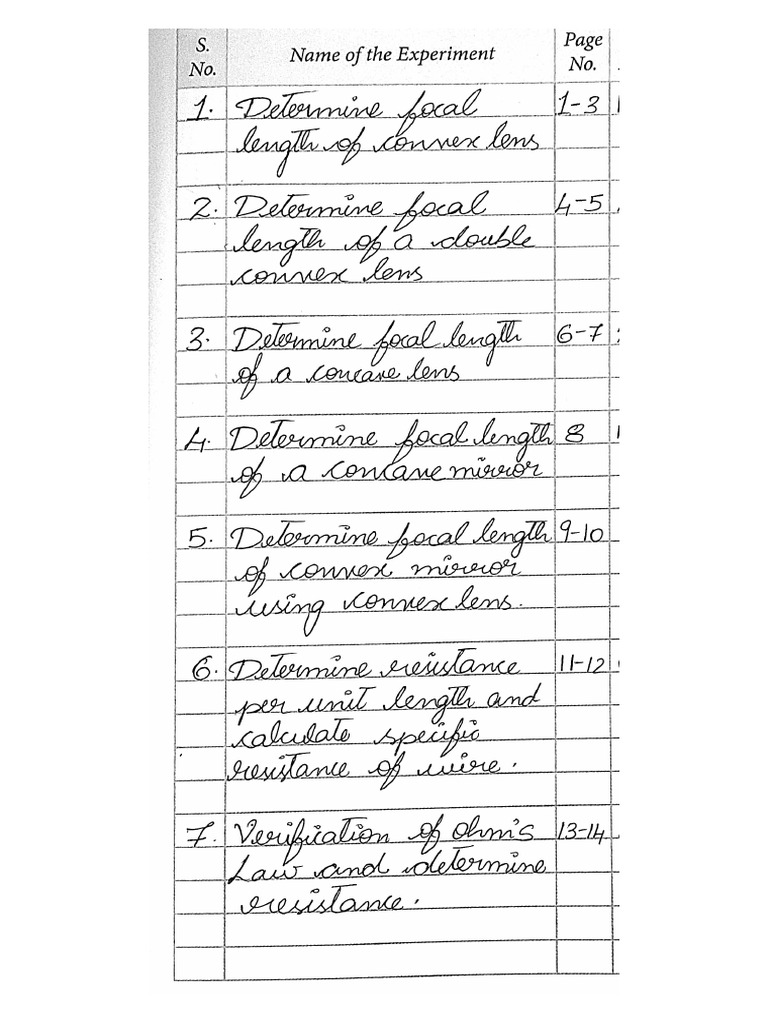 S. No. Name of the Experiment Page No.
1. Determine focal 1-3
length of convex lens
2. Determine focal 4-5
length of a double
convex lens
3. Determine focal length 6-7
of a concave lens
4. Determine focal length 8
of a concave mirror
5. Determine focal length 9-10
of convex mirror
using convex lens.
6. Determine resistance 11-12
per unit length and
calculate specific
resistance of wire.
7. Verification of ohm's 13-14
Law and determine
resistance.